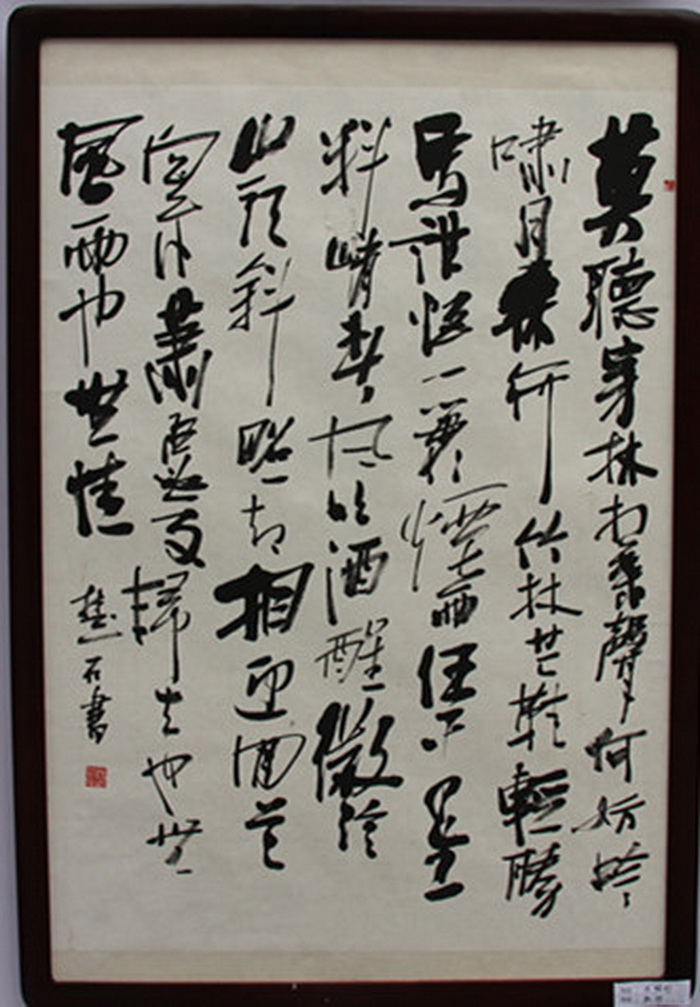 莫聽穿林打葉聲何妨吟
嘯且徐行竹杖芒鞋輕勝
馬誰怕一蓑煙雨任平生
料峭春風吹酒醒微冷
山頭斜照却相迎回首
向來蕭瑟處歸去也無
風雨也無情
石書